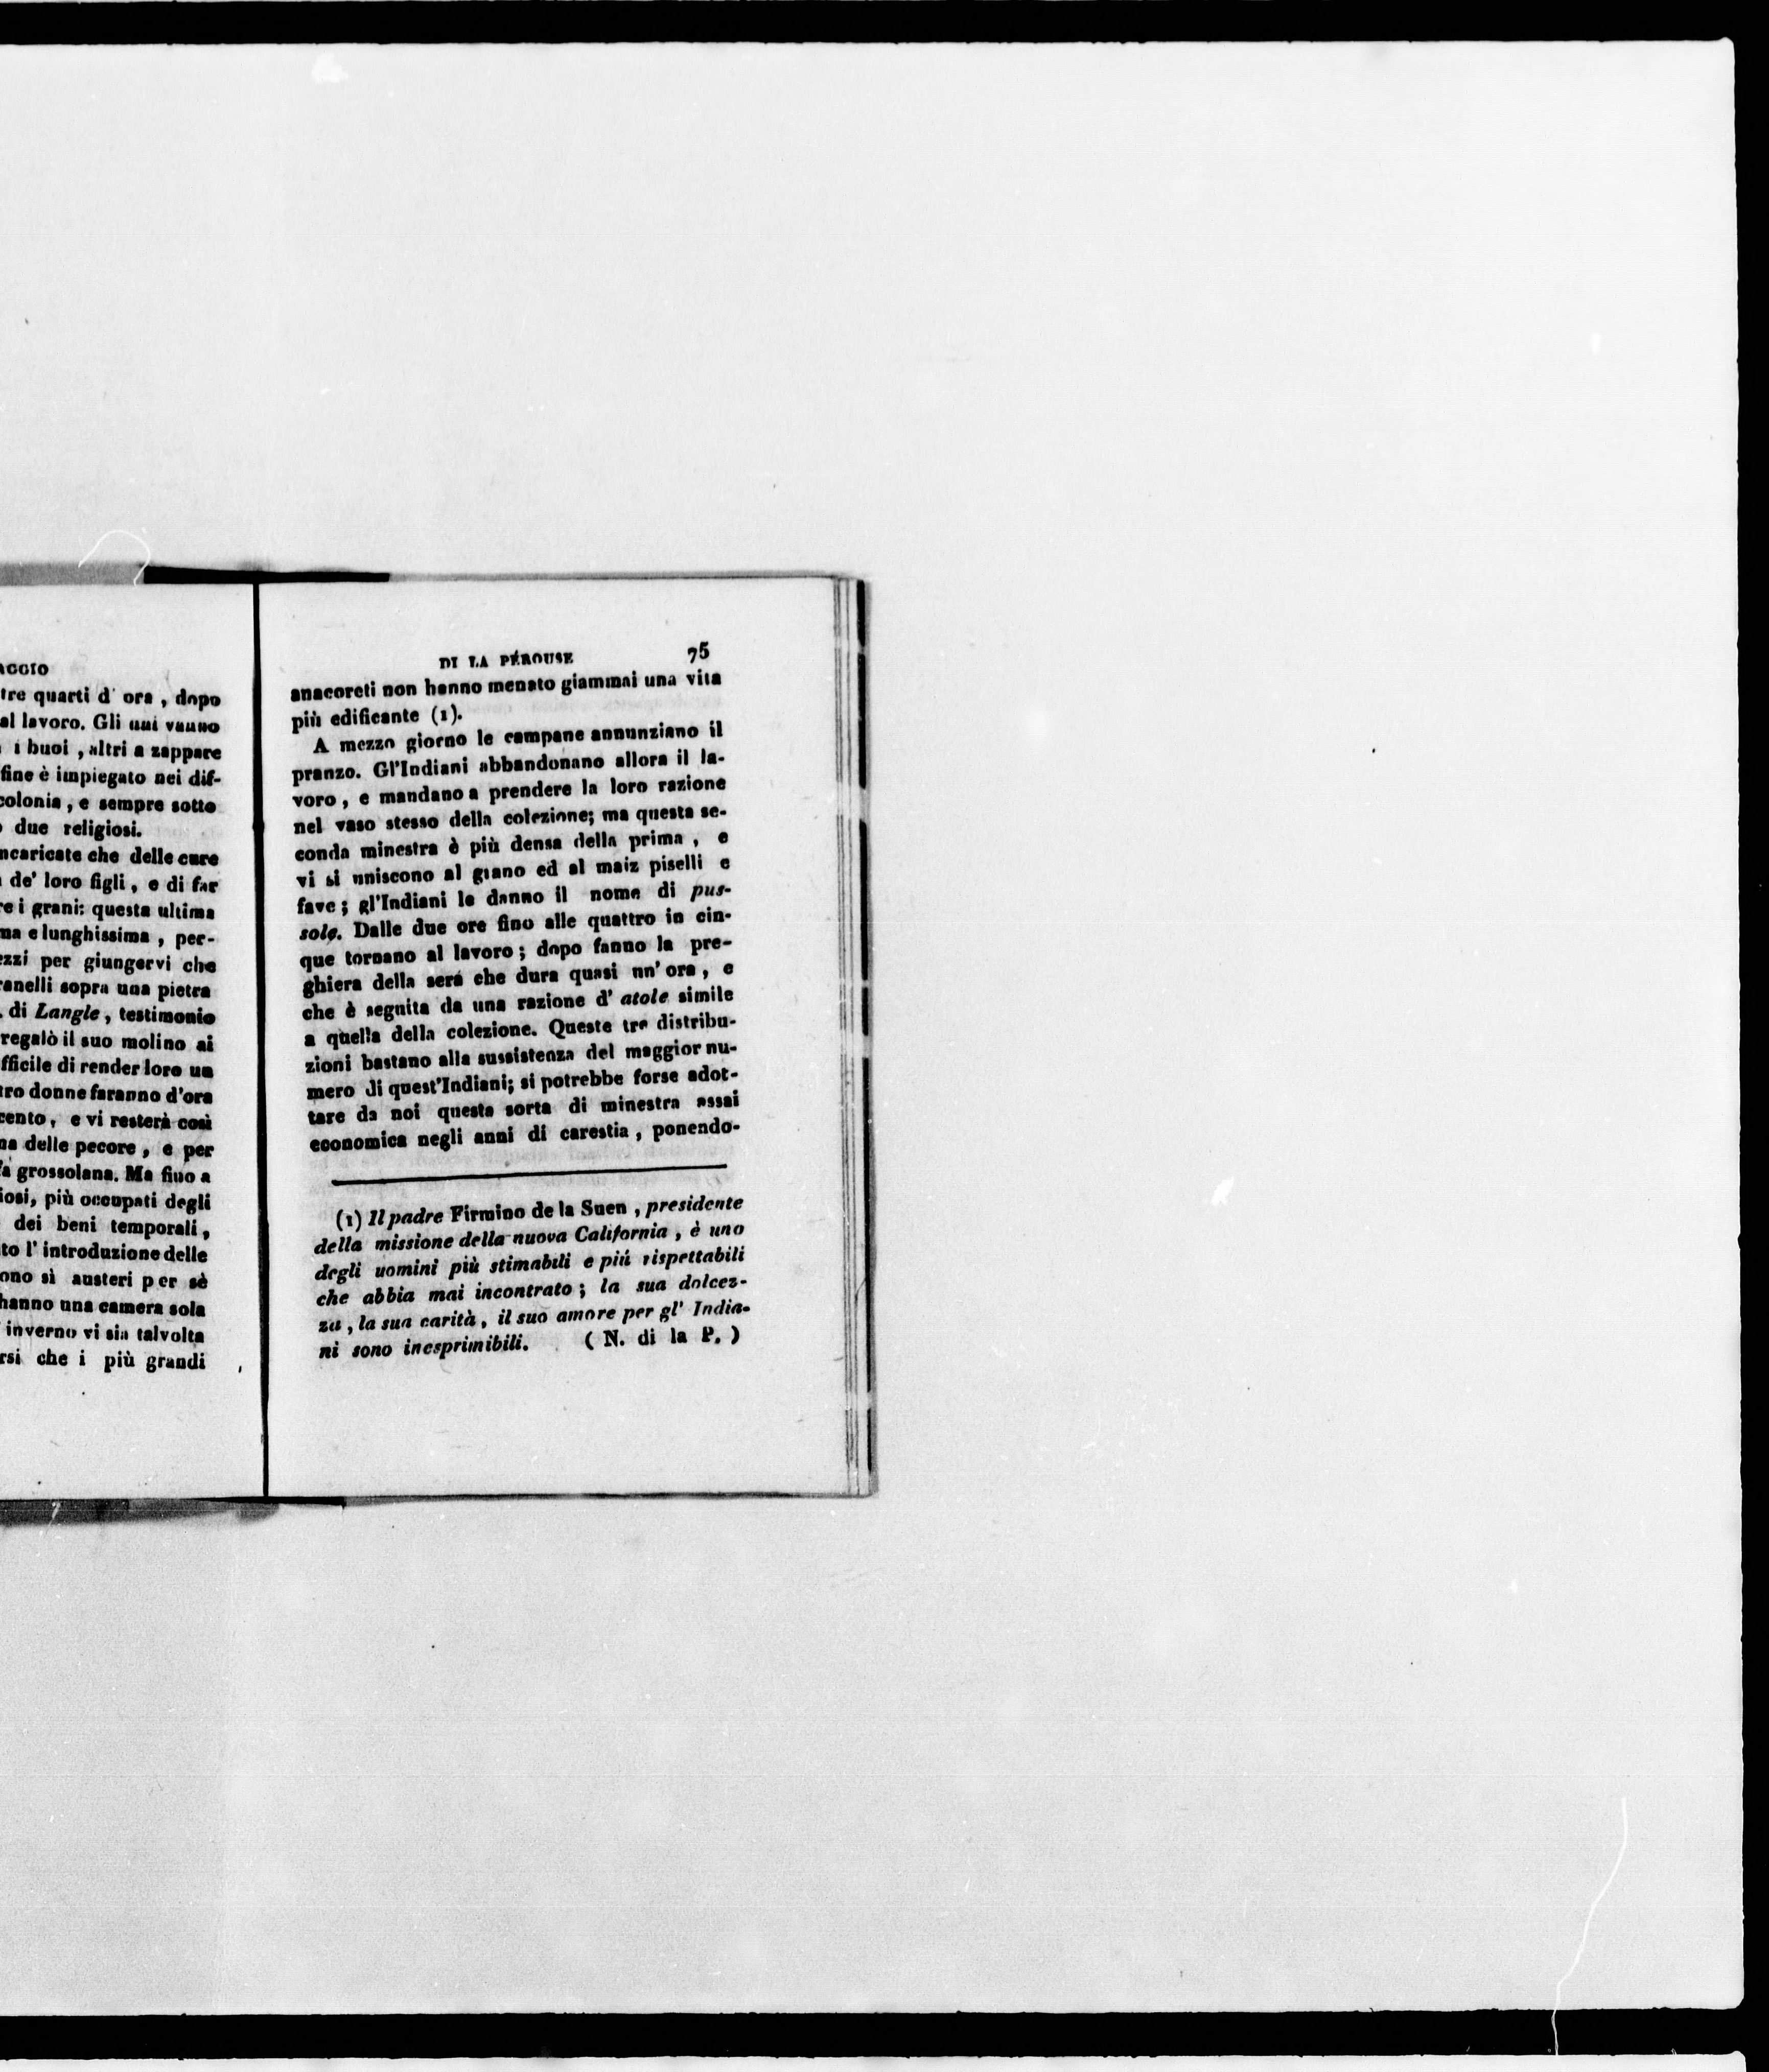 AGGIO
tre quarti d' ora , dopo
al lavoro. Gli uni vanno
i buoi , altri a zappare
fine è impiegato nei dif-
colonia , e sempre sotto
due religiosi.
ncaricate che delle cure
de' loro figli , e di far
re i grani: questa ultima
ma e lunghissima , per-
ezzi per giungervi che
ranelli sopra una pietra
. di Langle , testimonio
regalò il suo molino ai
fficile di render loro un
tro donne faranno d'ora
cento , e vi resterà così
na delle pecore , e per
fa grossolana. Ma fino a
iosi, più occupati degli
dei beni temporali ,
to l' introduzione delle
ono sì austeri per sè
hanno una camera sola
inverno vi sia talvolta
rsi che i più grandi
DI LA PÉROUSE 75
anacoreti non hanno menato giammai una vita
più edificante (1).
A mezzo giorno le campane annunziano il
pranzo. Gl'Indiani abbandonano allora il la-
voro , e mandano a prendere la loro razione
nel vaso stesso della colezione; ma questa se-
conda minestra è più densa della prima , e
vi si uniscono al grano ed al maiz piselli e
fave ; gl'Indiani le danno il nome di pus-
sole. Dalle due ore fino alle quattro in cin-
que tornano al lavoro ; dopo fanno la pre-
ghiera della sera che dura quasi un' ora , e
che è seguita da una razione d' atole simile
a quella della colezione. Queste tre distribu-
zioni bastano alla sussistenza del maggior nu-
mero di quest'Indiani; si potrebbe forse adot-
tare da noi questa sorta di minestra assai
economica negli anni di carestia , ponendo-
(1) Il padre Firmino de la Suen , presidente
della missione della nuova California , è uno
degli uomini più stimabili e piú rispettabili
che abbia mai incontrato ; la sua dolcez-
za , la sua carità , il suo amore per gl' India-
ni sono inesprimibili. ( N. di la P. )